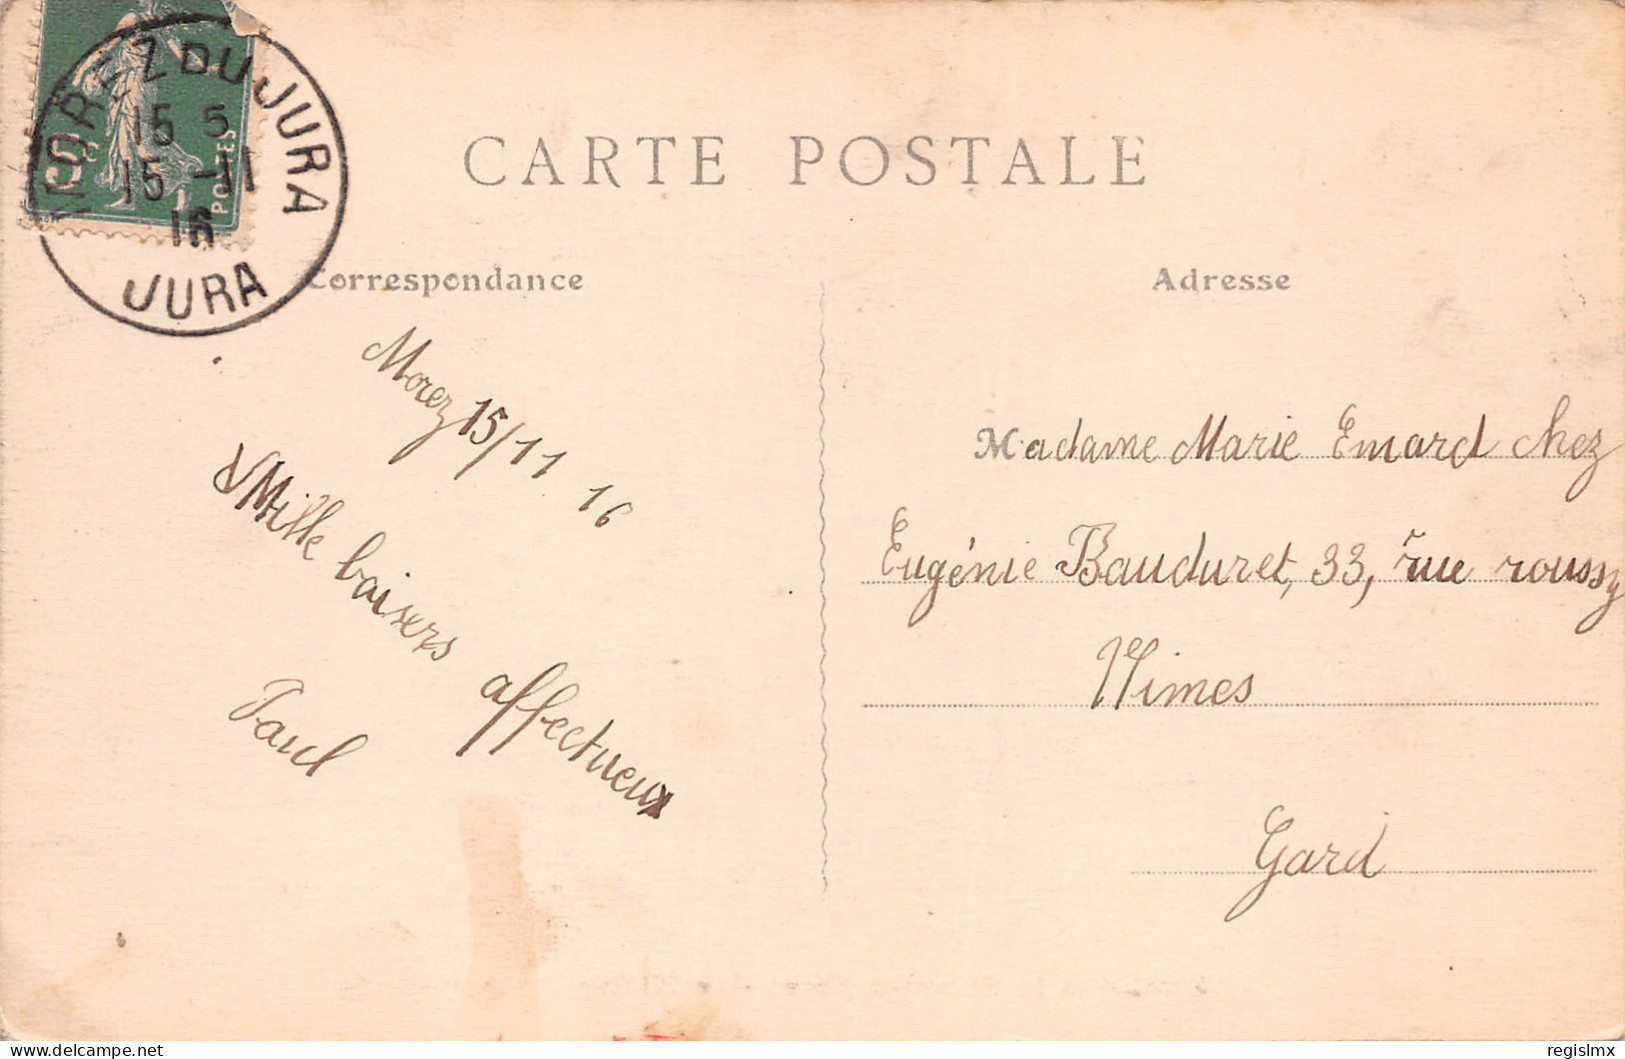 MOREZ DU JURA
15 5
15 -11
16
JURA
5c
POSTES
CARTE POSTALE
Correspondance
Adresse
Morez 15/11 16
Mille baisers affectueux
Paul
Madame Marie Emard chez
Eugénie Bauduret, 33, rue roussy
Nimes
Gard
regislmx